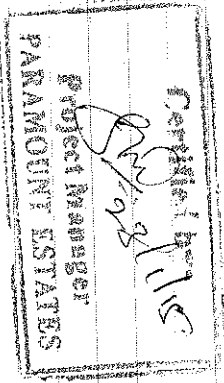 Certified by
28/11/15
Project Manager
PARAMOUNT ESTATES